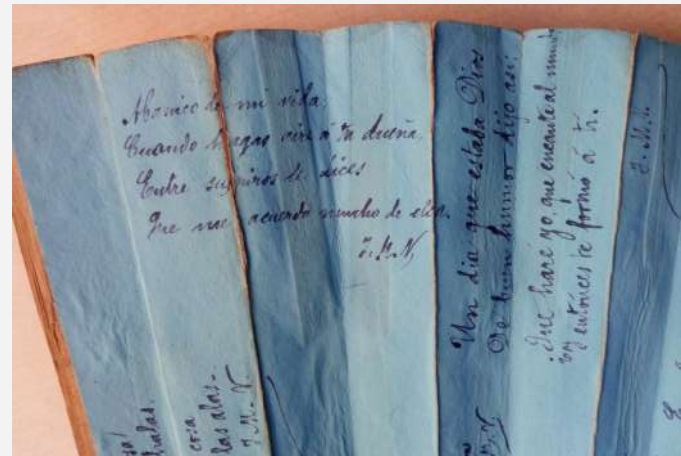 Abanico de mi vida,
Cuando hagas aire á tu dueña,
Entre suspiros le dices
Que me acuerdo mucho de ella.
J. M. N.
Un dia que estaba Dios
De buen humor dijo asi:
¿Que haré yo, que encante al mundo
y entónces te formó á ti.
J. M. N.
exhalas.
cosa
las alas.
J. M. V.